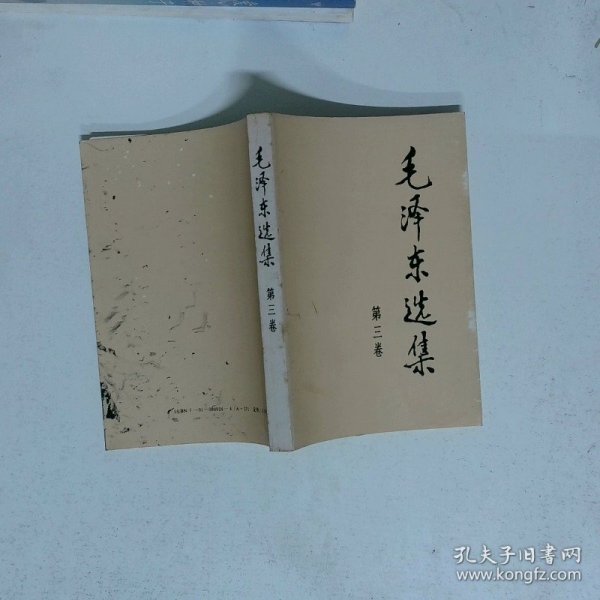 毛泽东选集
第三卷
毛泽东选集
第三卷
孔夫子旧书网
www.kongfz.com